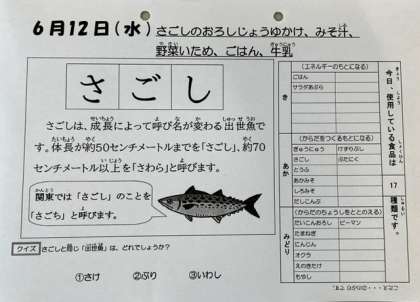 6月12日(水) さごしのおろしじょうゆかけ、みそ汁、
野菜いため、ごはん、牛乳
さごし
さごしは、成長によって呼び名が変わる出世魚で
す。体長が約50センチメートルまでを「さごし」、約70
センチメートル以上を「さわら」と呼びます。
関東では「さごし」のことを
「さごち」と呼びます。
クイズ さごしと同じ「出世魚」は、どれでしょうか？
①さけ ②ぶり ③いわし
今日、使用している食品は 17 種類です。
き
(エネルギーのもとになる)
ごはん
サラダあぶら
あか
(からだをつくるもとになる)
ぎゅうにゅう けずりぶし
さごし ぶたにく
とうふ
あかみそ
しろみそ
だしこんぶ
みどり
(からだのちょうしをととのえる)
だいこんおろし ピーマン
たまねぎ
にんじん
オクラ
えのきたけ
もやし